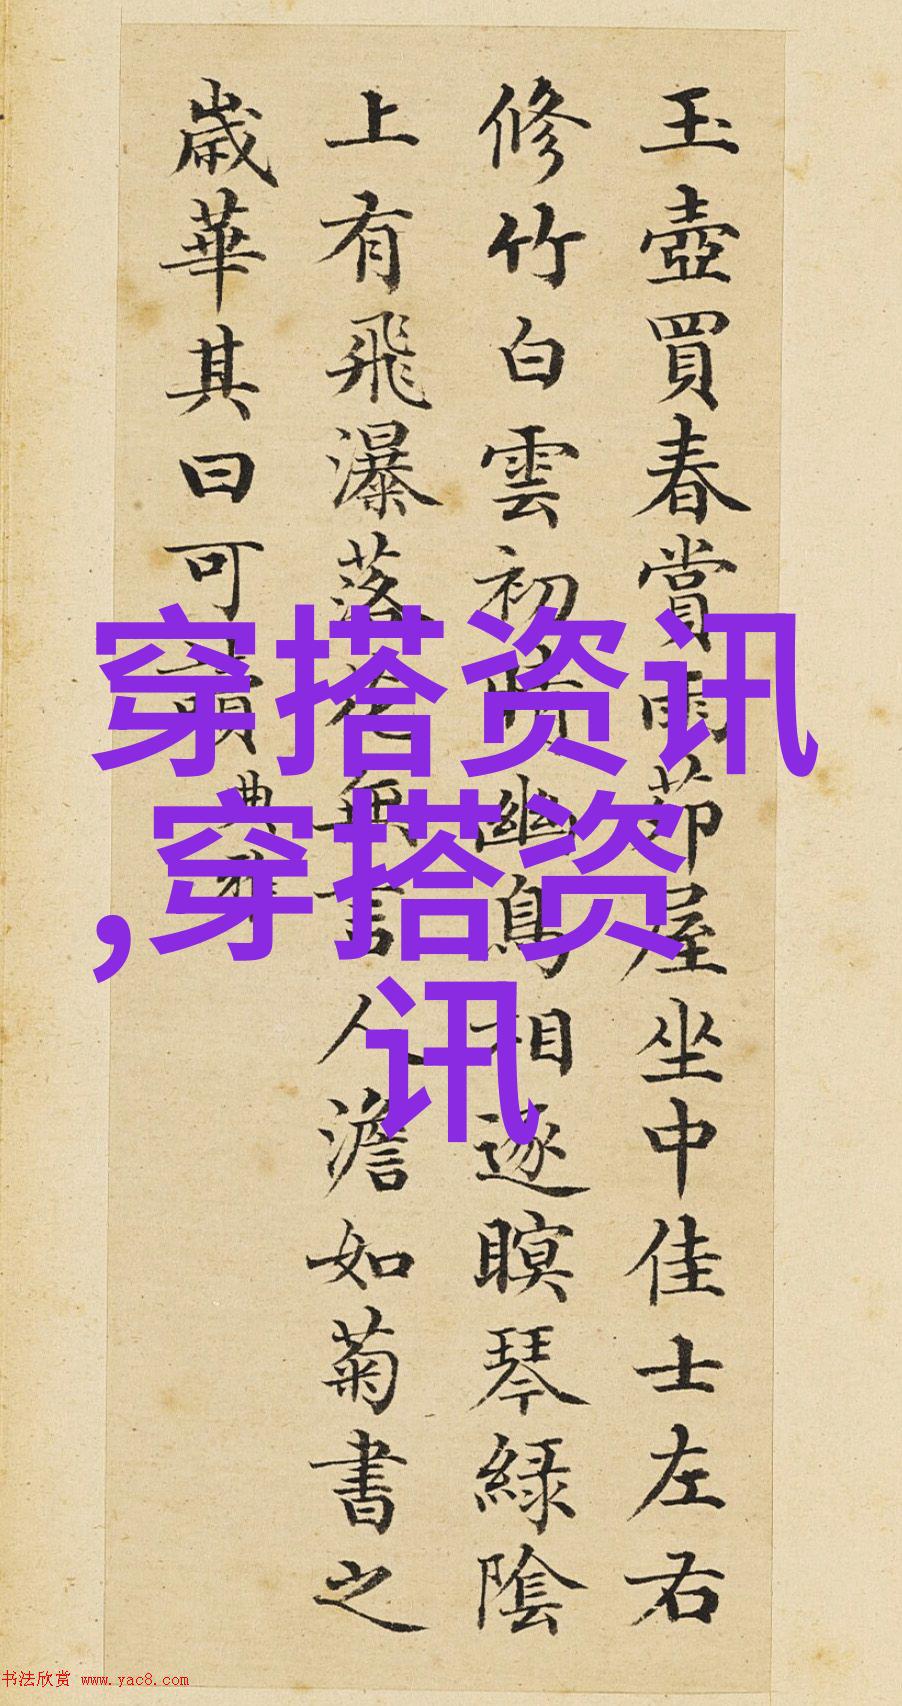 玉壺買春賞雨茆屋坐中佳士左右
修竹白雲初晴幽鳥相逐瞑琴緑隂
上有飛瀑落花無言人澹如菊書之
歲華其曰可讀
典雅
穿搭资讯
,穿搭资
讯
书法欣赏 www.yac8.com